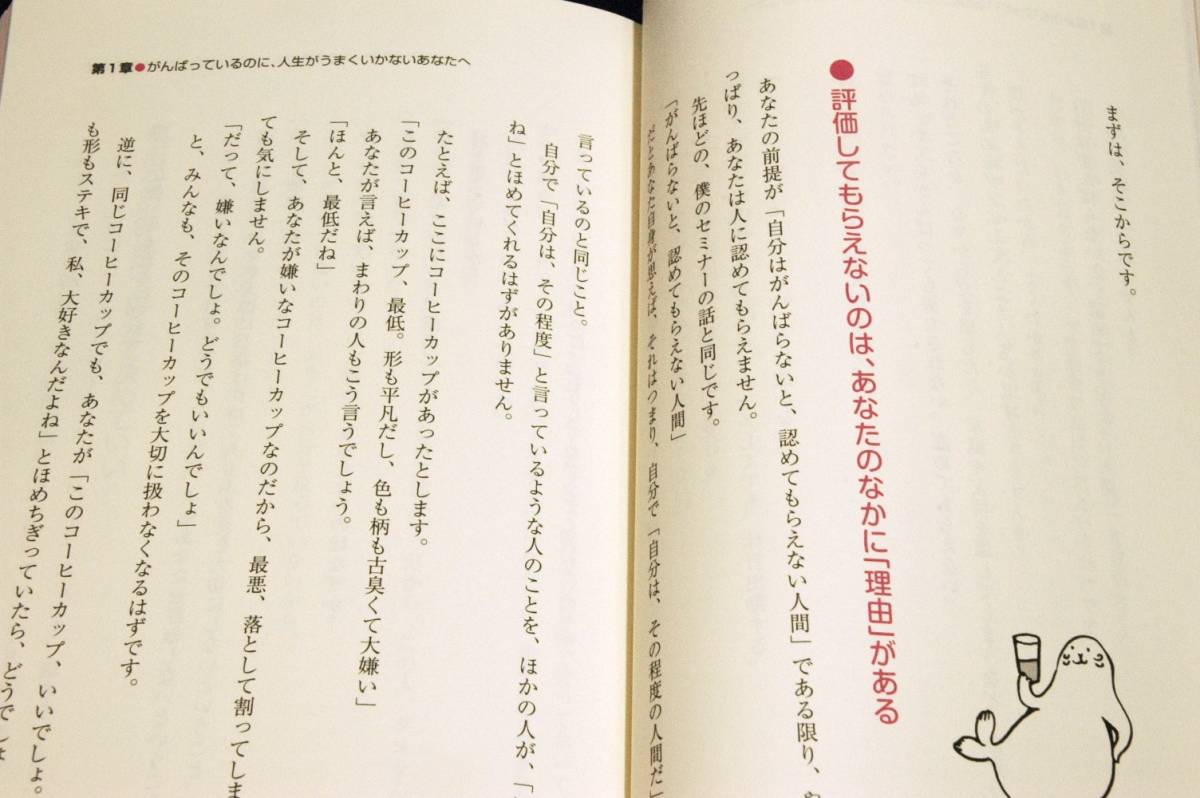 まずは、そこからです。
●評価してもらえないのは、あなたのなかに「理由」がある
あなたの前提が「自分はがんばらないと、認めてもらえない人間」である限り、や
っぱり、あなたは人に認めてもらえません。
先ほどの、僕のセミナーの話と同じです。
「がんばらないと、認めてもらえない人間」
だとあなた自身が思えば、それはつまり、自分で「自分は、その程度の人間だ」
第1章●がんばっているのに、人生がうまくいかないあなたへ
言っているのと同じこと。
自分で「自分は、その程度」と言っているような人のことを、ほかの人が、「
ね」とほめてくれるはずがありません。
たとえば、ここにコーヒーカップがあったとします。
「このコーヒーカップ、最低。形も平凡だし、色も柄も古臭くて大嫌い」
あなたが言えば、まわりの人もこう言うでしょう。
「ほんと、最低だね」
そして、あなたが嫌いなコーヒーカップなのだから、最悪、落として割ってしま
ても気にしません。
「だって、嫌いなんでしょ。どうでもいいんでしょ」
と、みんなも、そのコーヒーカップを大切に扱わなくなるはずです。
逆に、同じコーヒーカップでも、あなたが「このコーヒーカップ、いいでしょ。
も形もステキで、私、大好きなんだよね」とほめちぎっていたら、どうでしょ